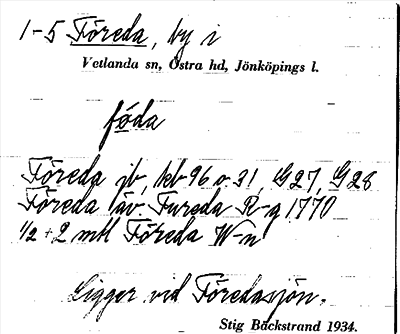 1-5 Föreda, by i
Vetlanda sn, Östra hd, Jönköpings l.
föda
Föreda jb, kb 96 o. 31, G27, G28
Föreda läv Fureda R-g 1770
1/2 + 2 mtl Föreda W-n
Ligger vid Föredasjön.
Stig Bäckstrand 1934.